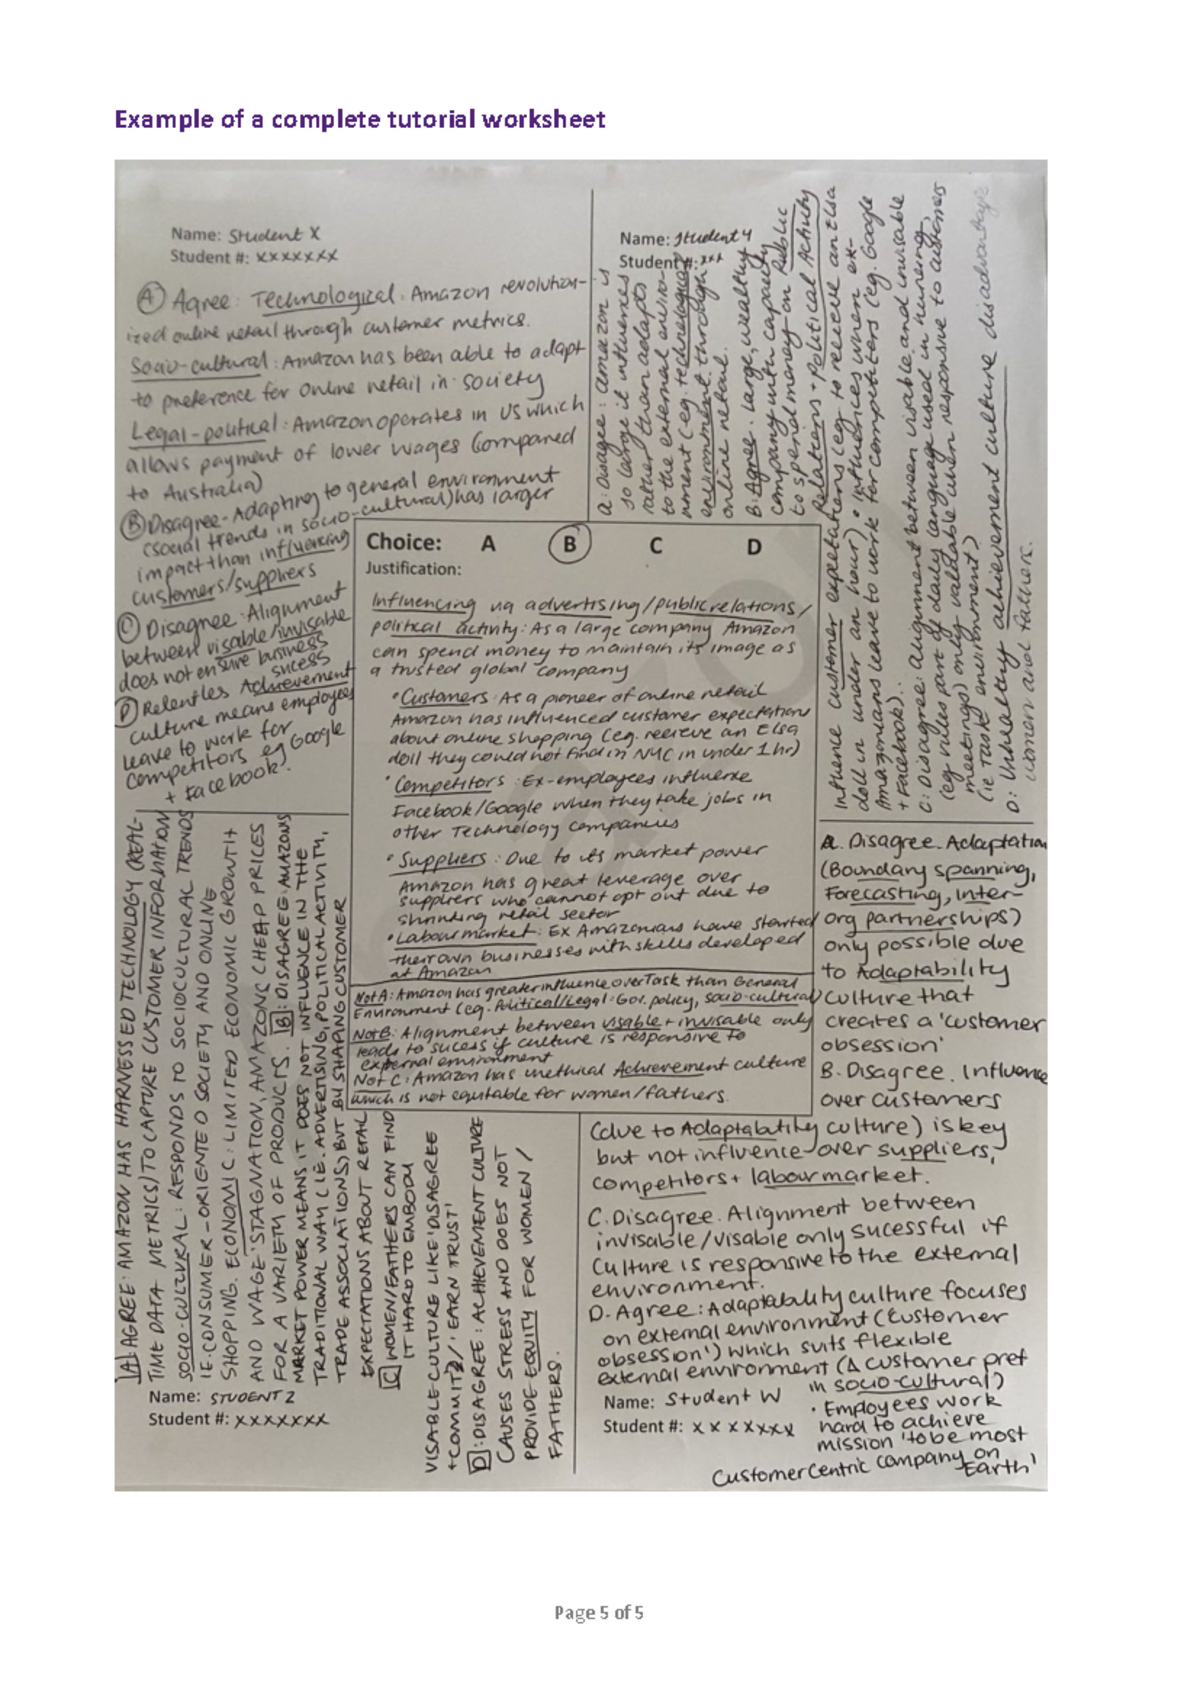 Example of a complete tutorial worksheet
Name: Student X
Student #: xxxxxxx
(A) Agree: Technological: Amazon revolution-
ized online retail through customer metrics.
Socio-cultural: Amazon has been able to adapt
to preference for online retail in society
Legal-political: Amazon operates in US which
allows payment of lower wages (compared
to Australia)
(B) Disagree - Adapting to general environment
(social trends in socio-cultural) has larger
impact than influencing
customers/suppliers
(C) Disagree - Alignment
between visable/invisable
does not ensure business
sucess
(D) Relentles Achievement
culture means employees
leave to work for
competitors eg Google
+ Facebook).
Name: Student Y
Student #: xxx
A: Disagree: amazon is
so large it influences
rather than adapts
to the external enviro-
nment (eg. technological
environment through
online retail.
B: Agree. Large, wealthy
company with capacity
to spend money on Public
Relations + Political Activity
Influence customer expectations (eg to recieve an Elsa
doll in under an hour) • Influences when ex-
Amazonians leave to work for competitors (eg. Google
+ Facebook)..
C: Disagree: alignment between visable and invisable
(eg values part of daily language used in
meetings) only valuable when responsive to customers
(ie Task environment)
D: Unhealthy achievement culture disadvantages
women and fathers.
Choice: A (B) C D
Justification:
Influencing via advertising/public relations/
political activity: As a large company Amazon
can spend money to maintain its image as
a trusted global company
• Customers: As a pioneer of online retail
Amazon has influenced customer expectations
about online shopping (eg. recieve an Elsa
doll they could not find in NYC in under 1hr)
• Competitors: Ex-employees influence
Facebook/Google when they take jobs in
other Technology companies
• Suppliers: Due to its market power
Amazon has great leverage over
suppliers who cannot opt out due to
shrinking retail sector
• Labour market: Ex Amazonians have started
their own businesses with skills developed
at Amazon
Not A: Amazon has greater influence over Task than General
Environment (eg. Political/Legal: Gov. policy, socio-cultural)
Not B: Alignment between visable + invisable only
leads to sucess if culture is responsive to
external environment
Not C: Amazon has unethical Achievement culture
which is not equitable for women/fathers.
[A]: AGREE: AMAZON HAS HARNESSED TECHNOLOGY (REAL-
TIME DATA METRICS) TO CAPTURE CUSTOMER INFORMATION
SOCIO-CULTURAL: RESPONDS TO SOCIOCULTURAL TRENDS
IE: CONSUMER-ORIENTED SOCIETY AND ONLINE
SHOPPING. ECONOMIC: LIMITED ECONOMIC GROWTH
AND WAGE STAGNATION, AMAZONS CHEAP PRICES
FOR A VARIETY OF PRODUCTS. [B]: DISAGREE: AMAZONS
MARKET POWER MEANS IT DOES NOT INFLUENCE IN THE
TRADITIONAL WAY (IE. ADVERTISING, POLITICAL ACTIVITY,
TRADE ASSOCIATIONS) BUT BY SHAPING CUSTOMER
EXPECTATIONS ABOUT RETAIL
[C] WOMEN/FATHERS CAN FIND
IT HARD TO EMBODY
VISABLE CULTURE LIKE 'DISAGREE
+ COMMIT'/'EARN TRUST'
[D]: DISAGREE: ACHIEVEMENT CULTURE
CAUSES STRESS AND DOES NOT
PROVIDE EQUITY FOR WOMEN/
FATHERS.
Name: STUDENT Z
Student #: xxxxxxx
A. Disagree. Adaptation
(Boundary spanning,
Forecasting, inter-
org partnerships)
only possible due
to Adaptability
culture that
creates a 'customer
obsession'
B. Disagree. Influence
over customers
(due to Adaptability culture) is key
but not influence over suppliers,
competitors + labour market.
C. Disagree. Alignment between
invisable/visable only sucessful if
culture is responsive to the external
environment.
D. Agree: Adaptability culture focuses
on external environment ('customer
obsession') which suits flexible
external environment (Δ customer pref
in socio-cultural)
• Employees work
hard to achieve
mission 'to be most
customer centric company on
Earth'
Name: Student W
Student #: xxxxxxx
Page 5 of 5